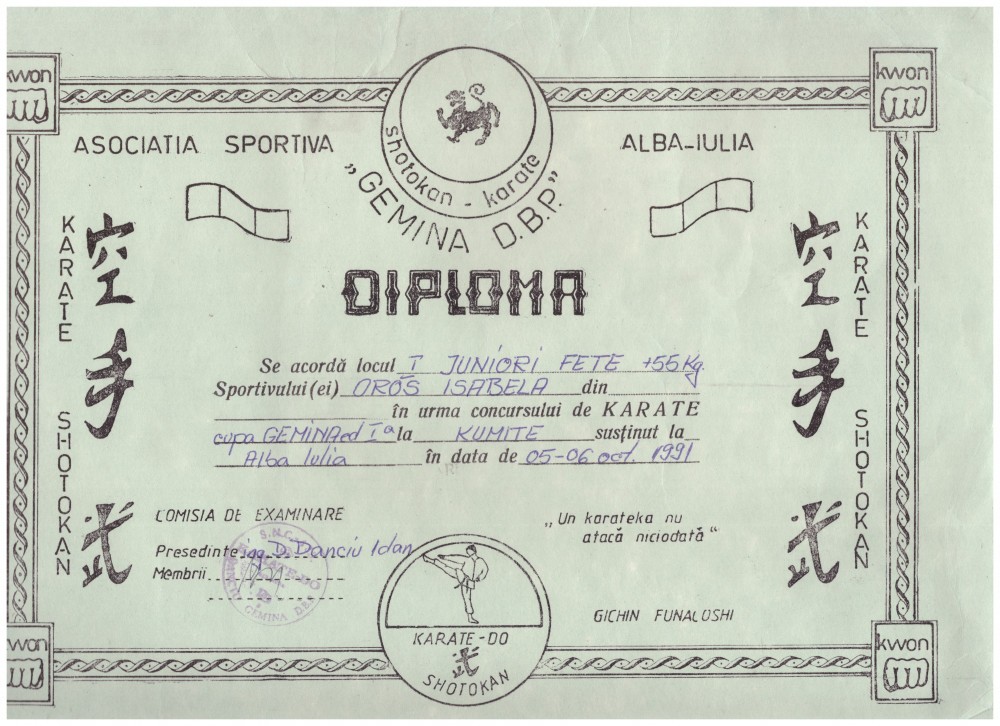 kwon
kwon
ASOCIATIA SPORTIVA
ALBA-IULIA
shotokan - karate
„GEMINA D.B.P.”
DIPLOMA
KARATE SHOTOKAN
空手 武
空手 武
KARATE SHOTOKAN
Se acordă locul I JUNIORI FETE +55 Kg.
Sportivului(ei) OROS ISABELA din
în urma concursului de KARATE
cupa GEMINA ed Iª la KUMITE susținut la
Alba Iulia în data de 05-06 oct. 1991
COMISIA DE EXAMINARE
Presedinte ing. D. Danciu Idan
Membrii
S.N.C.
KARATE-DO
GEMINA D.B.P.
„Un karateka nu
atacă niciodată“
GICHIN FUNALOSHI
KARATE-DO
武
SHOTOKAN
kwon
kwon